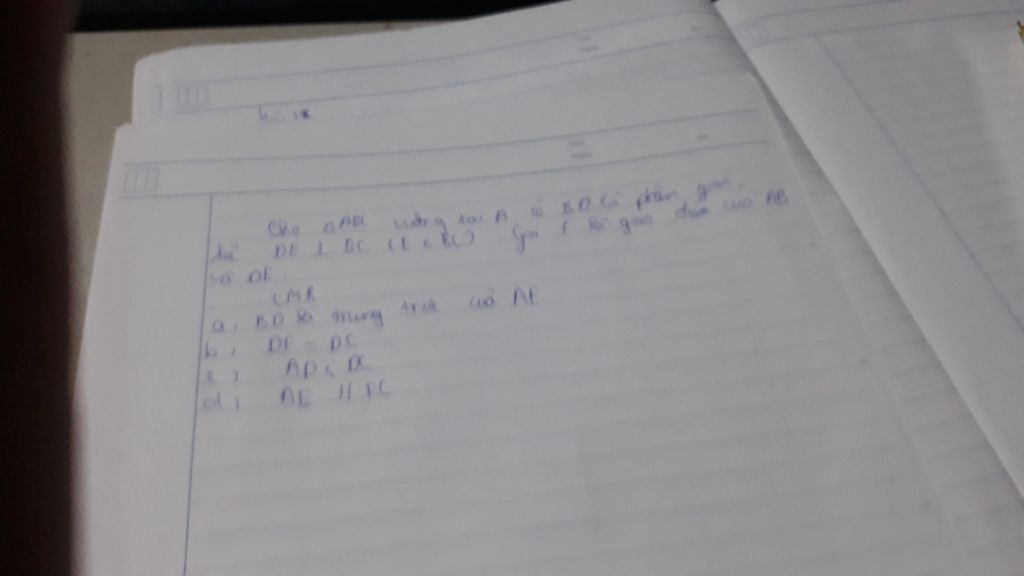 bài 1
Cho △ABC vuông tại A có BD là phân giác,
kẻ DE ⊥ BC (E ∈ BC) Gọi F là giao điểm của AB
và DE.
CMR
a, BD là trung trực của AE
b, DF = DC
c, AD < DC
d, AE // FC